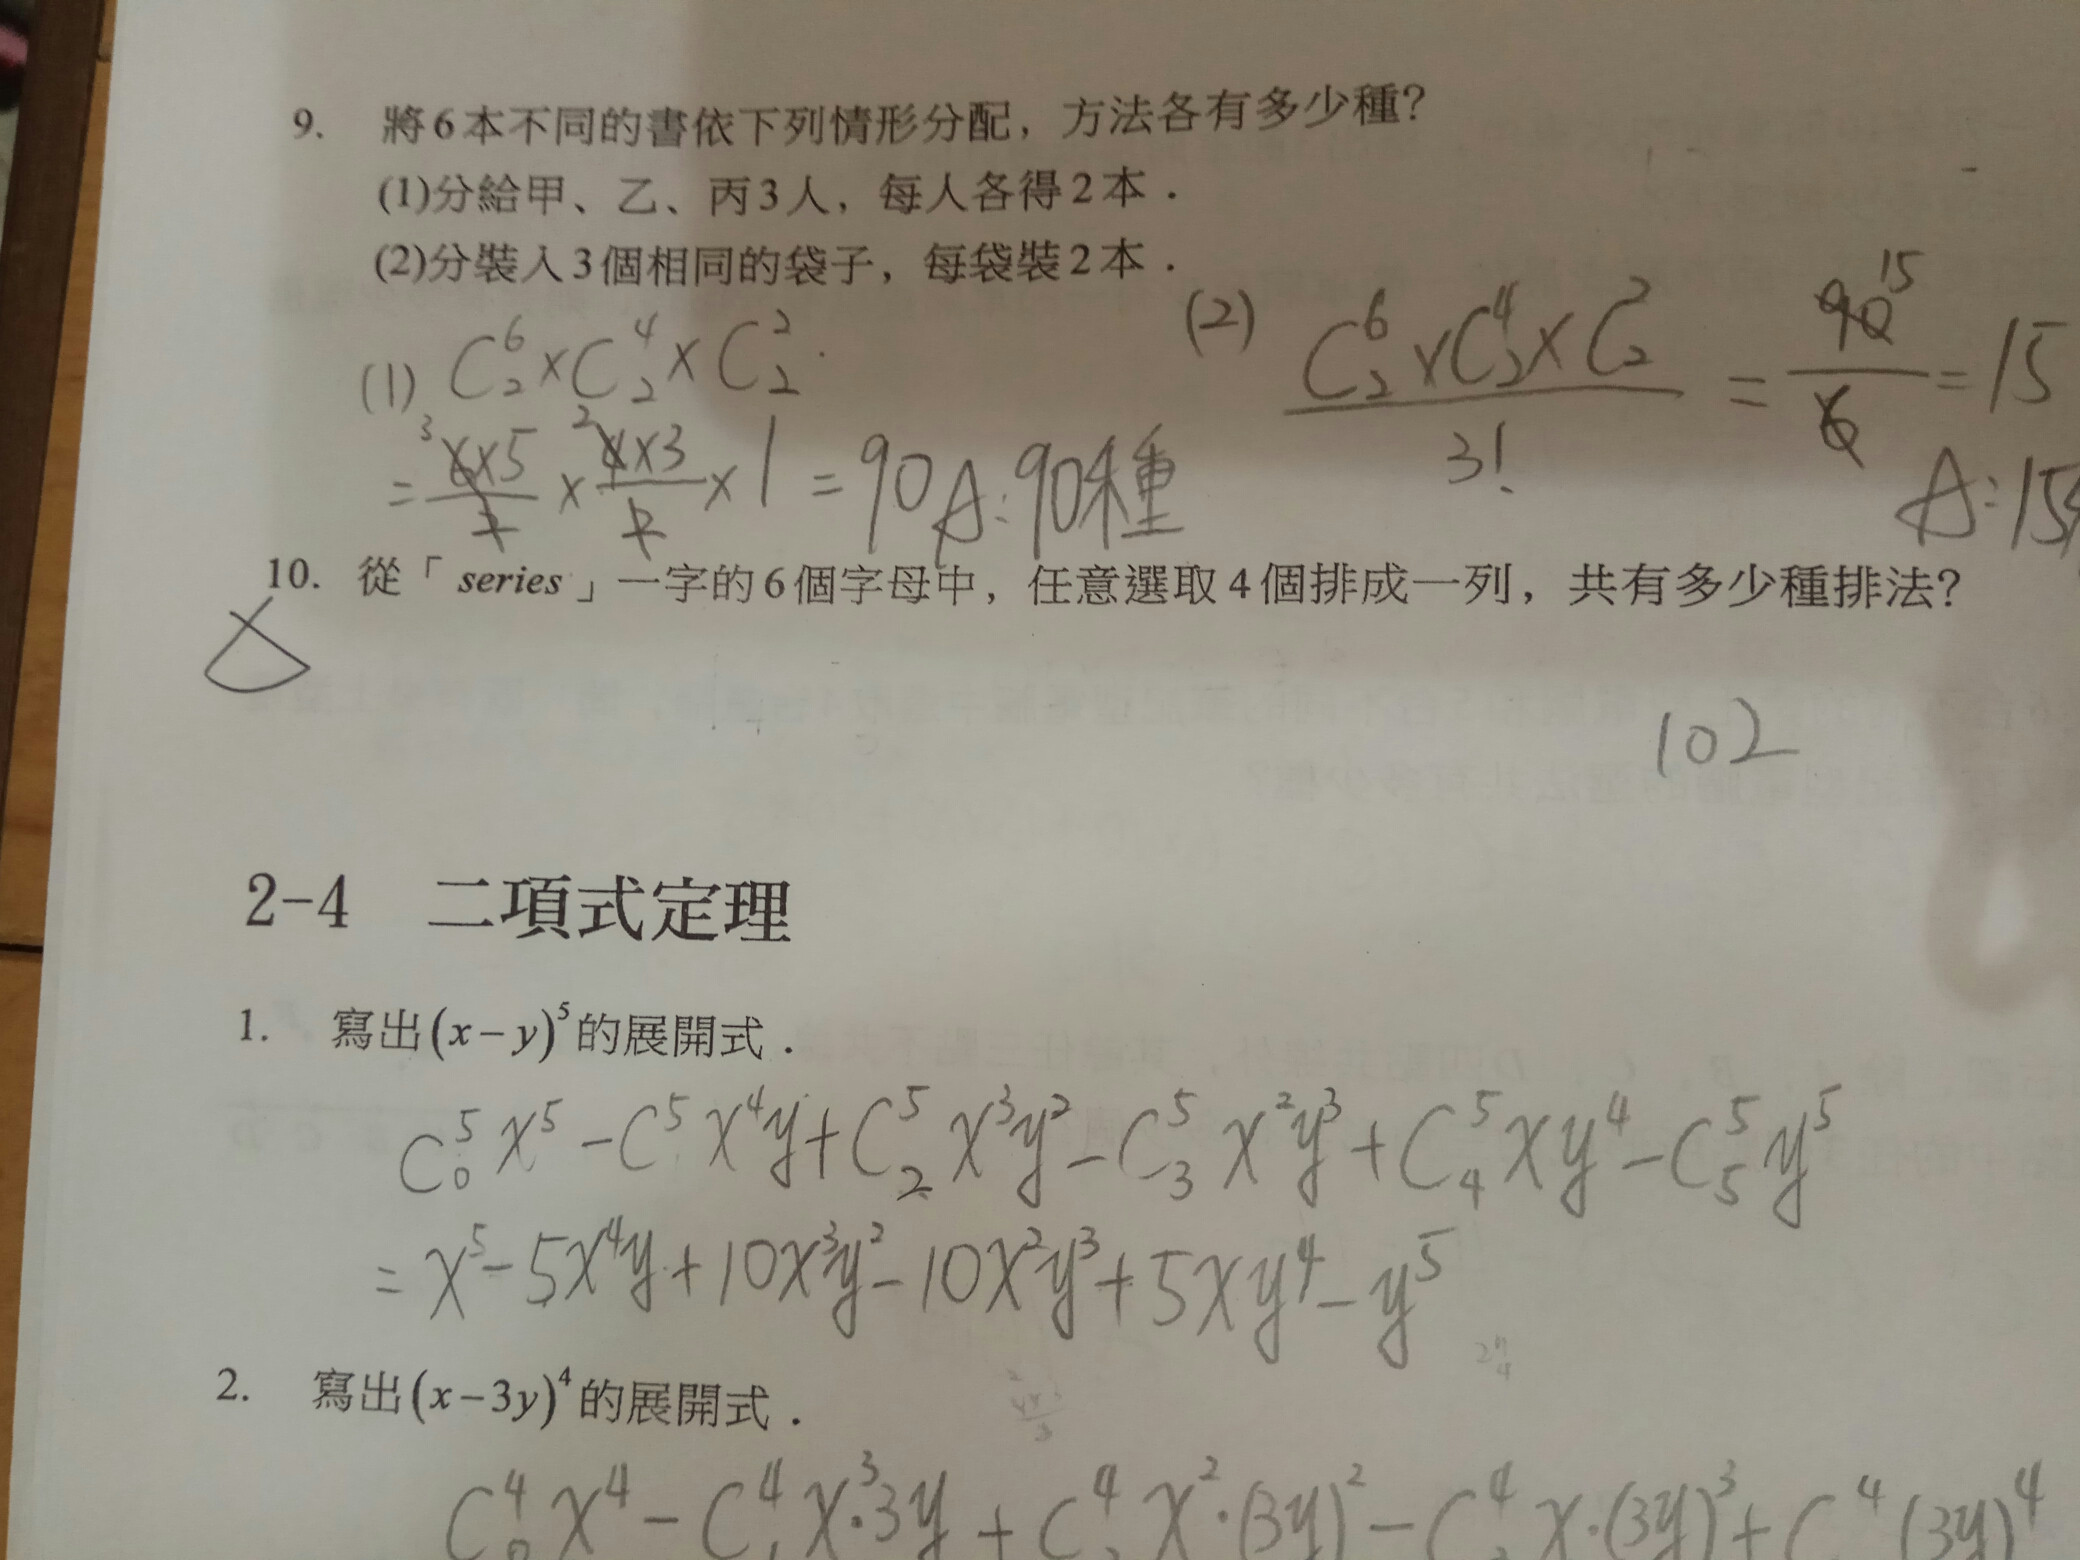 9. 將6本不同的書依下列情形分配，方法各有多少種？
(1)分給甲、乙、丙3人，每人各得2本．
(2)分裝入3個相同的袋子，每袋裝2本．
(1) C⁶₂×C⁴₂×C²₂
= 6×5/2 × 4×3/2 × 1 = 90 A:90種
3 2
(2) C⁶₂×C⁴₂×C²₂/3! = 90/6 = 15
15
A:15
10. 從「series」一字的6個字母中，任意選取4個排成一列，共有多少種排法？
102
2-4 二項式定理
1. 寫出(x−y)⁵的展開式．
C⁵₀x⁵−C⁵x⁴y+C⁵₂x³y²−C⁵₃x²y³+C⁵₄xy⁴−C⁵₅y⁵
=x⁵−5x⁴y+10x³y²−10x²y³+5xy⁴−y⁵
2. 寫出(x−3y)⁴的展開式．
C⁴₀x⁴−C⁴₁x³·3y+C⁴x²·(3y)²−C⁴x·(3y)³+C⁴(3y)⁴